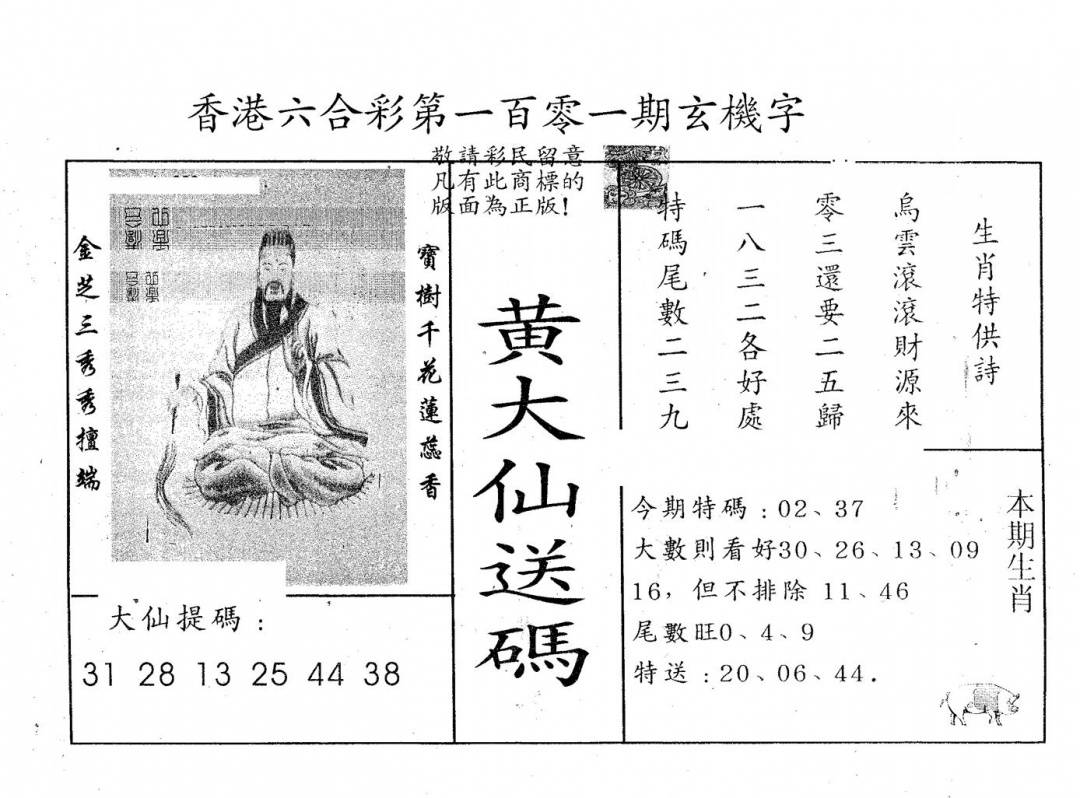 香港六合彩第一百零一期玄機字
敬請彩民留意
凡有此商標的
版面為正版!
金芝三秀秀擅端
寶樹千花蓮蕊香
大仙提碼:
31 28 13 25 44 38
黃大仙送碼
生肖特供詩
烏雲滾滾財源來
零三還要二五歸
一八三二各好處
特碼尾數二三九
本期生肖
今期特碼:02、37
大數則看好30、26、13、09
16，但不排除 11、46
尾數旺0、4、9
特送:20、06、44.